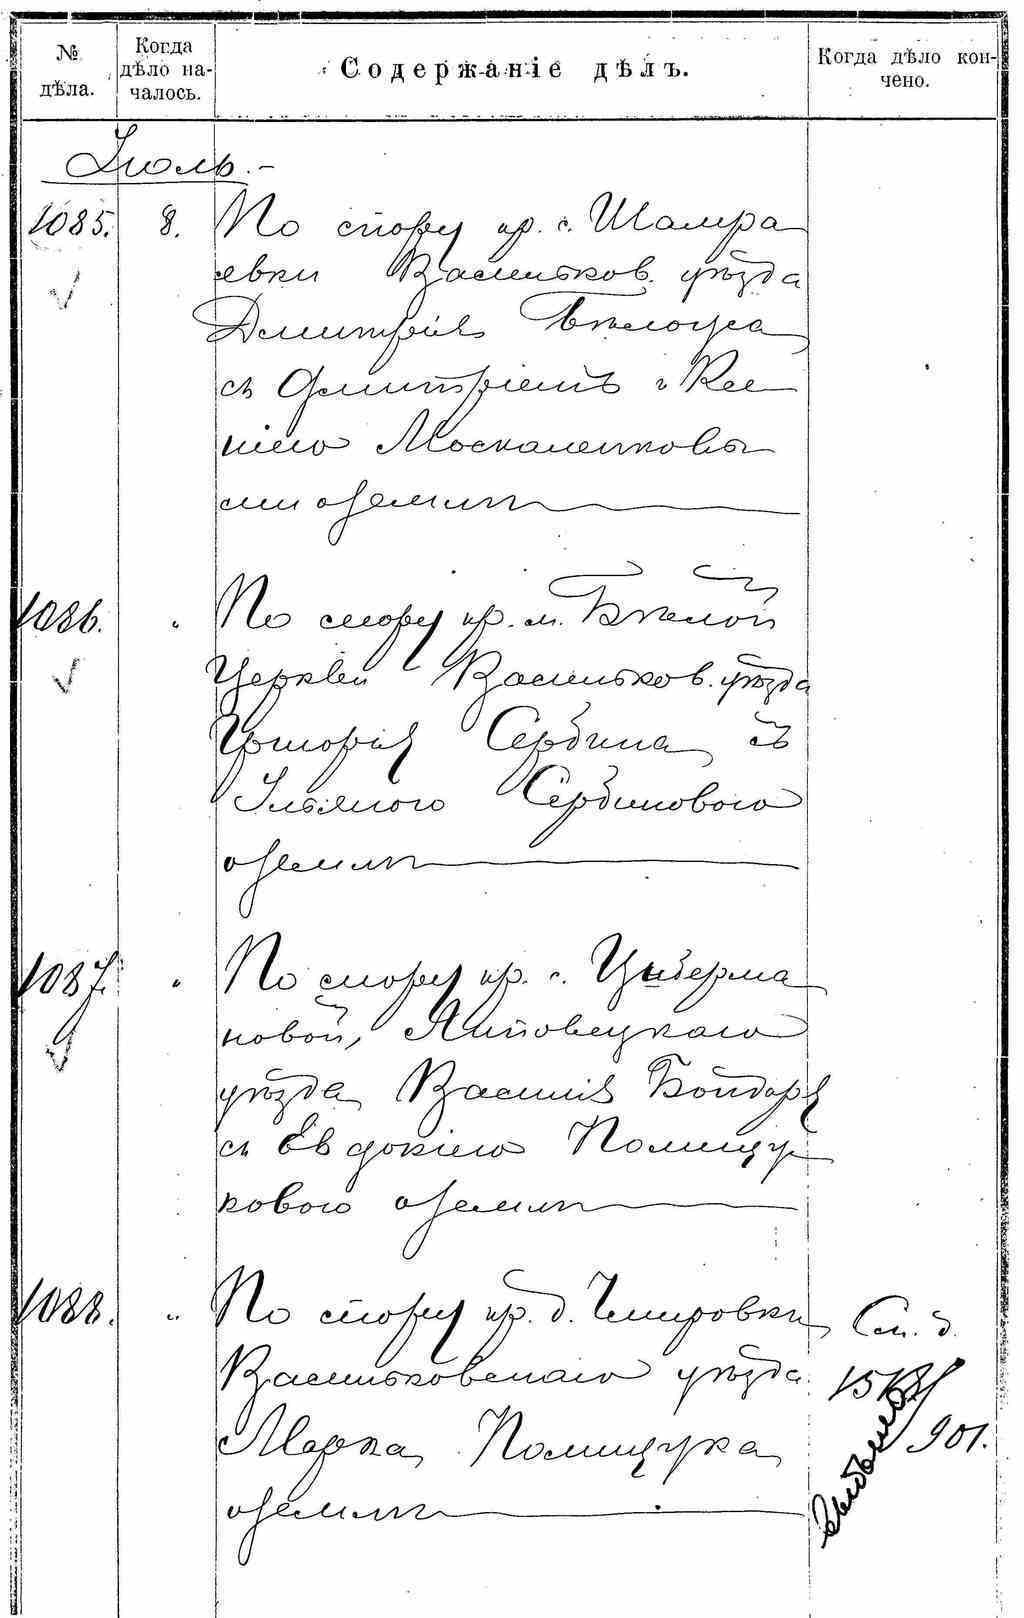 № дѣла.
Когда дѣло началось.
Содержаніе дѣлъ.
Когда дѣло кончено.
Іюль.-
1085. 8. По спору кр. с. Шамра
евки Васильков. уѣзда
Дмитрія Бѣлоуса
съ Дмитріемъ и Ксе
ніею Москаленковы
ми о землѣ
1086. " По спору кр. м. Бѣлой
Церкви Васильков. уѣзда
Григорія Сербина съ
Ульяною Сербиновою
о землѣ
1087. " По спору кр. с. Циберма
новой, Липовецкаго
уѣзда Василія Бондаря
съ Евдокіею Полищу
ковою о землѣ
1088. " По спору кр. д. Чмировки
Васильковскаго уѣзда
Марка Полищука
о землѣ
См. д.
901.